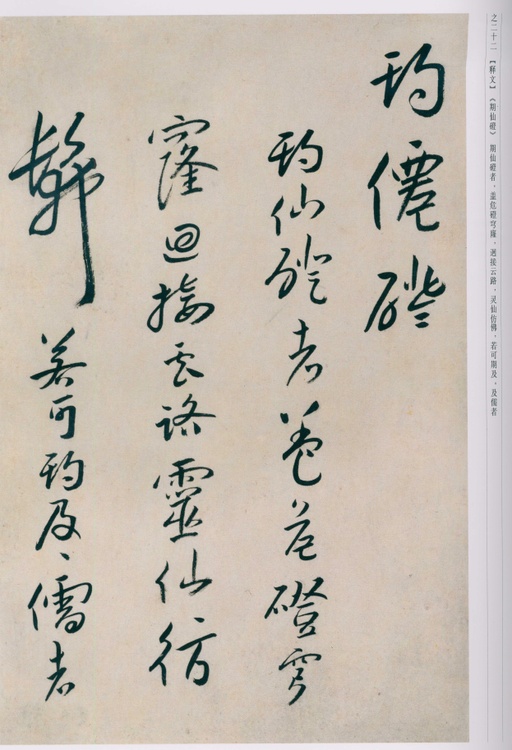 之二十二 【释文】《期仙磴》 期仙磴者，盖危磴穹窿，迥接云路，灵仙仿佛，若可期及，及儒者
期僊磴
期仙磴者蓋危磴穹
窿迴接云路靈仙彷
髴若可期及、儒者